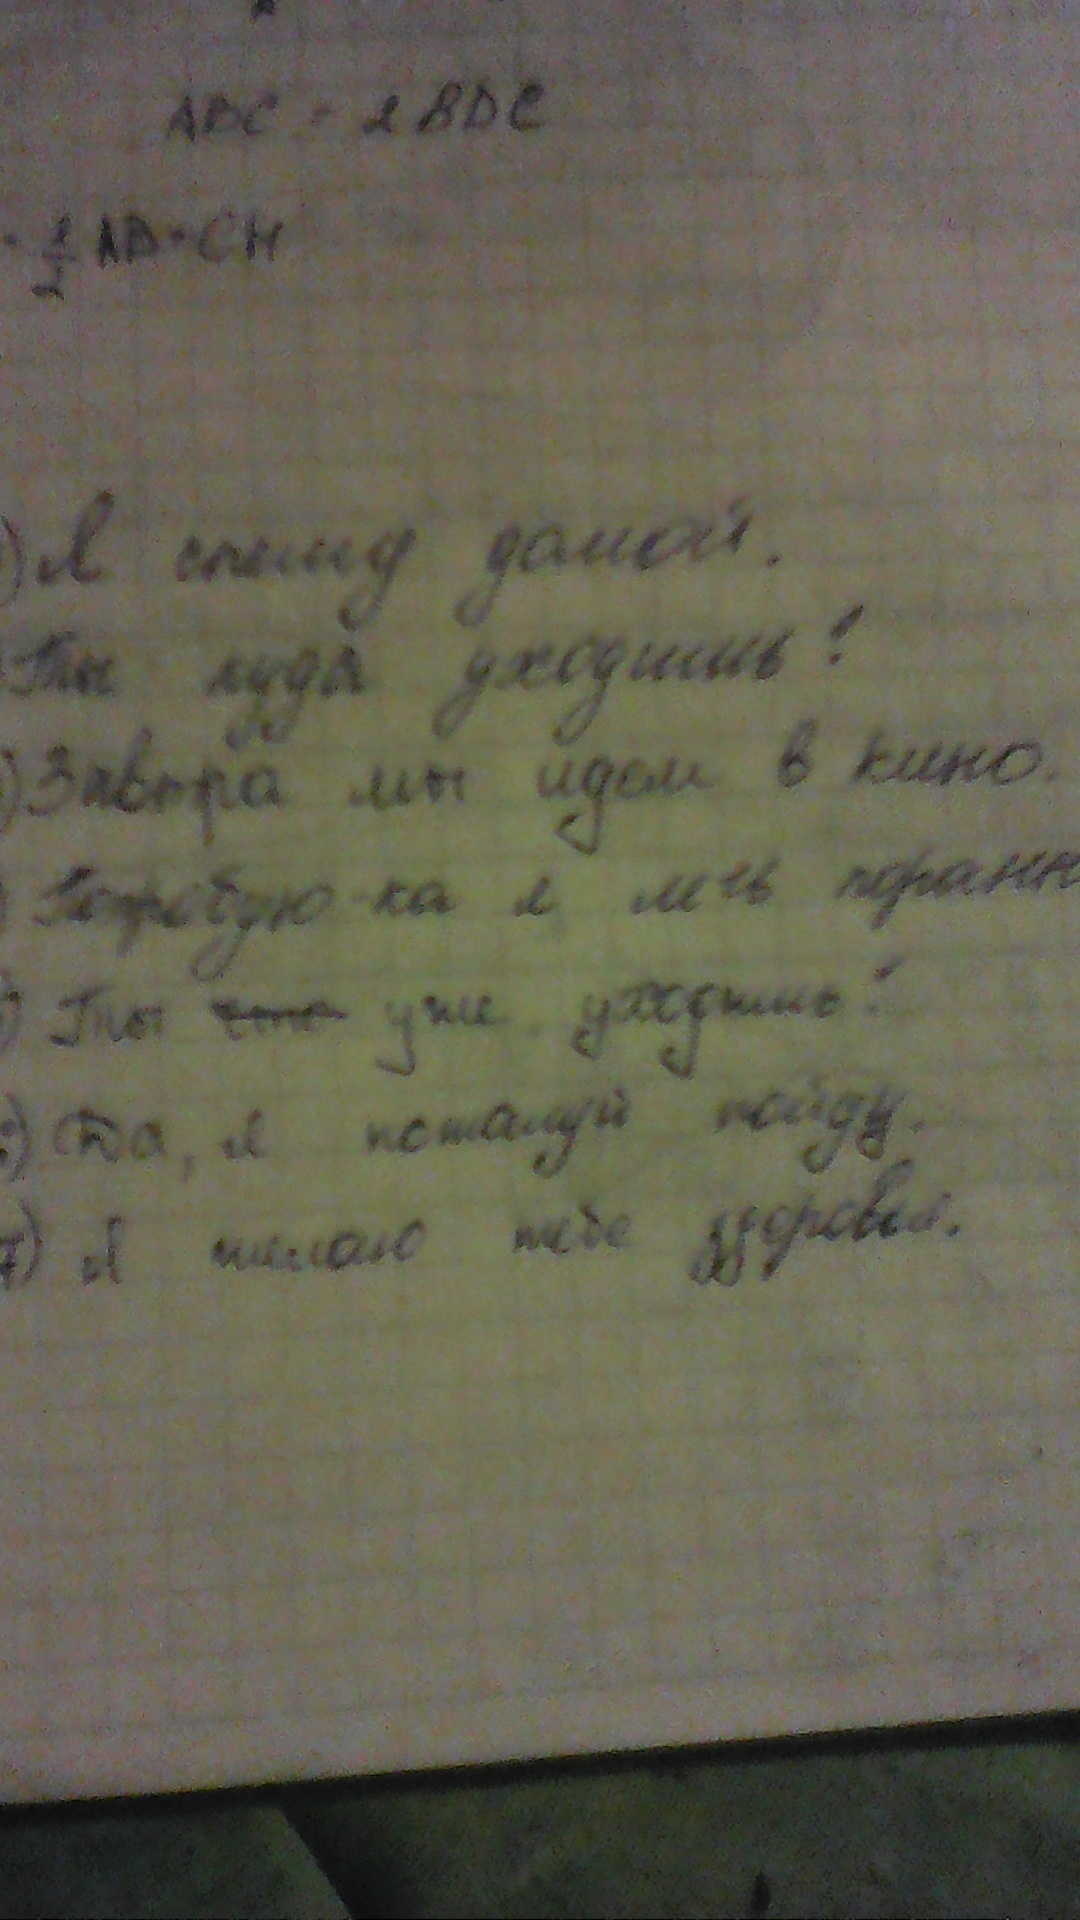 ADC = 2 BDC
1/2 AD · CH
) Я спешу домой.
Ты куда уходишь?
) Завтра мы идем в кино.
) Попробую-ка я
) Ты уже уходишь?
) Да, я пожалуй пойду.
7) Я желаю тебе здоровья.